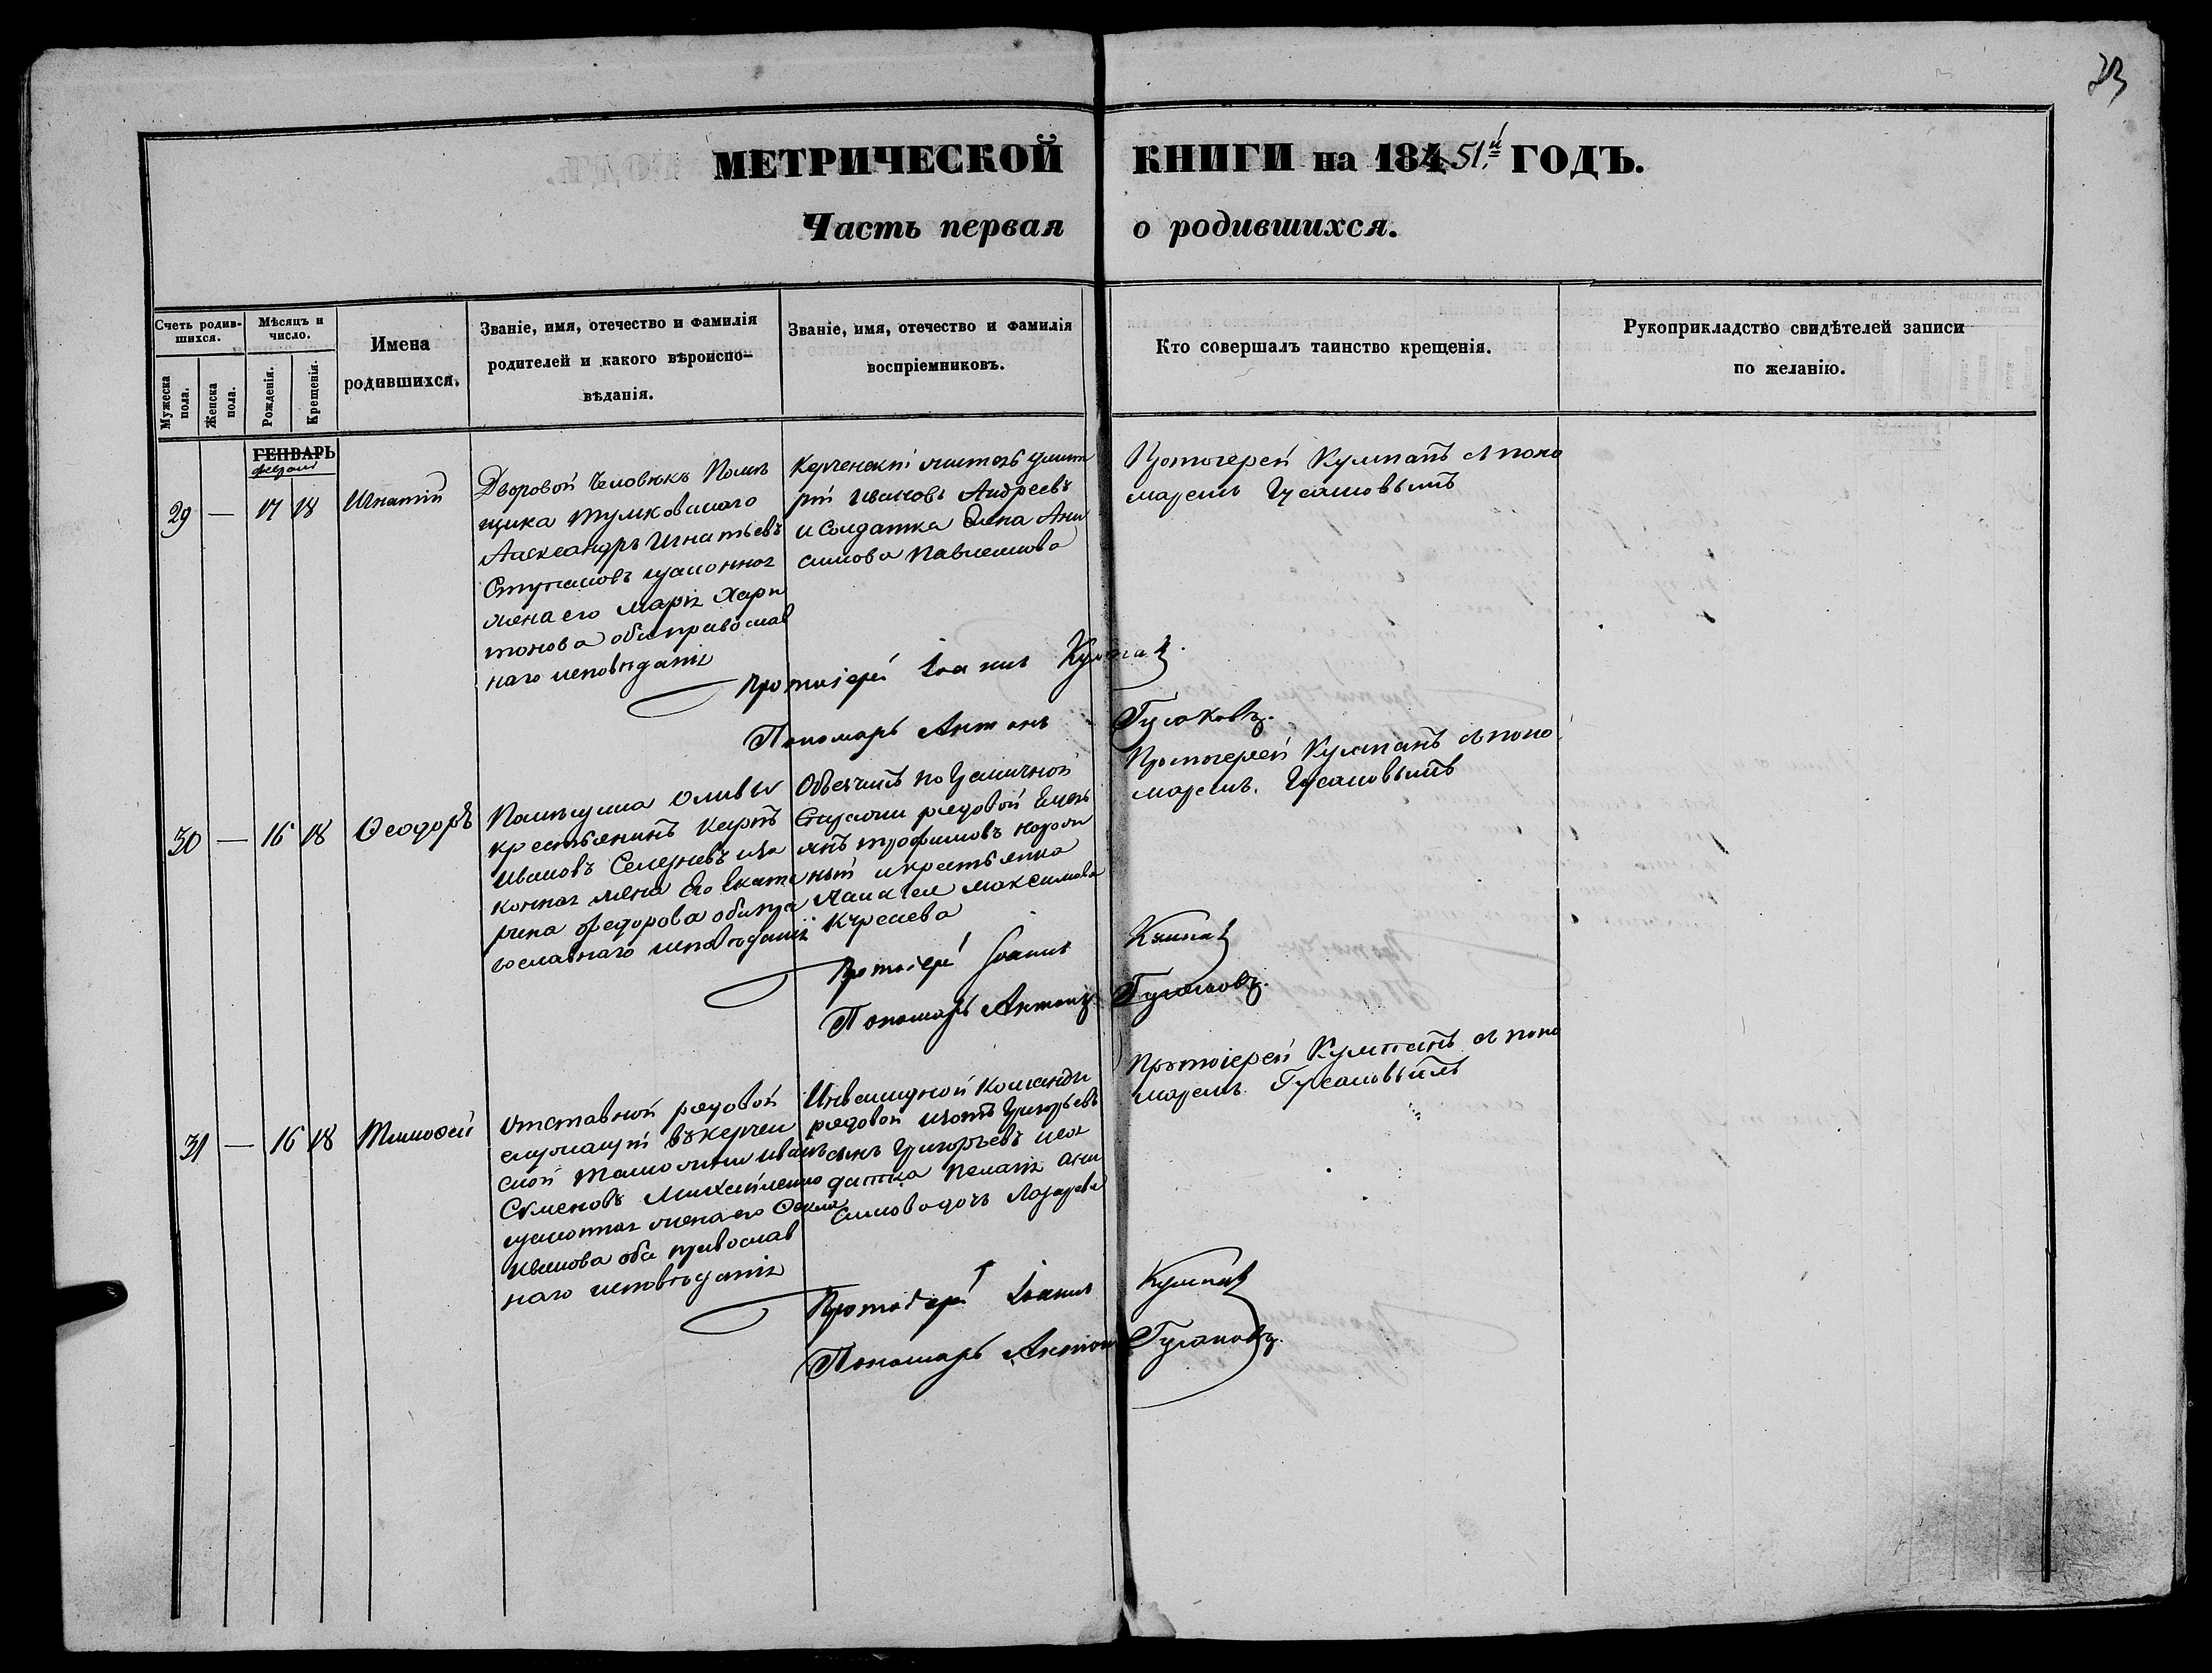 23
МЕТРИЧЕСКОЙ КНИГИ на 184 51й ГОДЪ.
Часть первая о родившихся.
Счетъ родив-
шихся.
Мужеска
пола.
Женска
пола.
Мѣсяцъ и
число.
Рожденія.
Крещенія.
Имена
родившихся.
Званіе, имя, отечество и фамилія
родителей и какого вѣроиспо-
вѣданія.
Званіе, имя, отечество и фамилія
воспріемниковъ.
Кто совершалъ таинство крещенія.
Рукоприкладство свидѣтелей записи
по желанію.
ГЕНВАРЬ
29 — 17 18 Игнатій
Дворовой человѣкъ Помѣ
щика
Александръ Игнатьевъ
законная
жена его Марія Хари
тонова оба православ
наго исповѣданія
Керченскій житель Дмит
рій Ивановъ Андреевъ
и солдатка Анна Ани
симова
Протоіерей Кумпанъ съ поно
маремъ Гусаковымъ
Протоіерей Іоаннъ Кумпанъ
Пономарь Антонъ Гусаковъ.
30 — 16 18 Ѳеодоръ
крестьянинъ Карпъ
Ивановъ Селезневъ за
конная жена Его Екате
рина Федорова оба пра
вославнаго исповѣданія
Объезчикъ пограничной
Стражи рядовой Емель
янъ Трофимовъ
и крестьянка
Максимова
Протоіерей Кумпанъ съ поно
маремъ Гусаковымъ
Протоіерей Іоаннъ Кумпанъ
Пономарь Антонъ Гусаковъ.
31 — 16 18 Тимоѳей
Отставной рядовой
служащій въ Керчен
ской Таможни Иванъ
Семеновъ Михайленко
законная жена его Ѳекла
Иванова оба православ
наго исповѣданія
Инвалидной Команды
рядовой Григорьевъ
сынъ Григорьевъ и сол
датка Пелагія Они
симова дочь Лазарева
Протоіерей Кумпанъ съ поно
маремъ Гусаковымъ
Протоіерей Іоаннъ Кумпанъ
Пономарь Антонъ Гусаковъ.